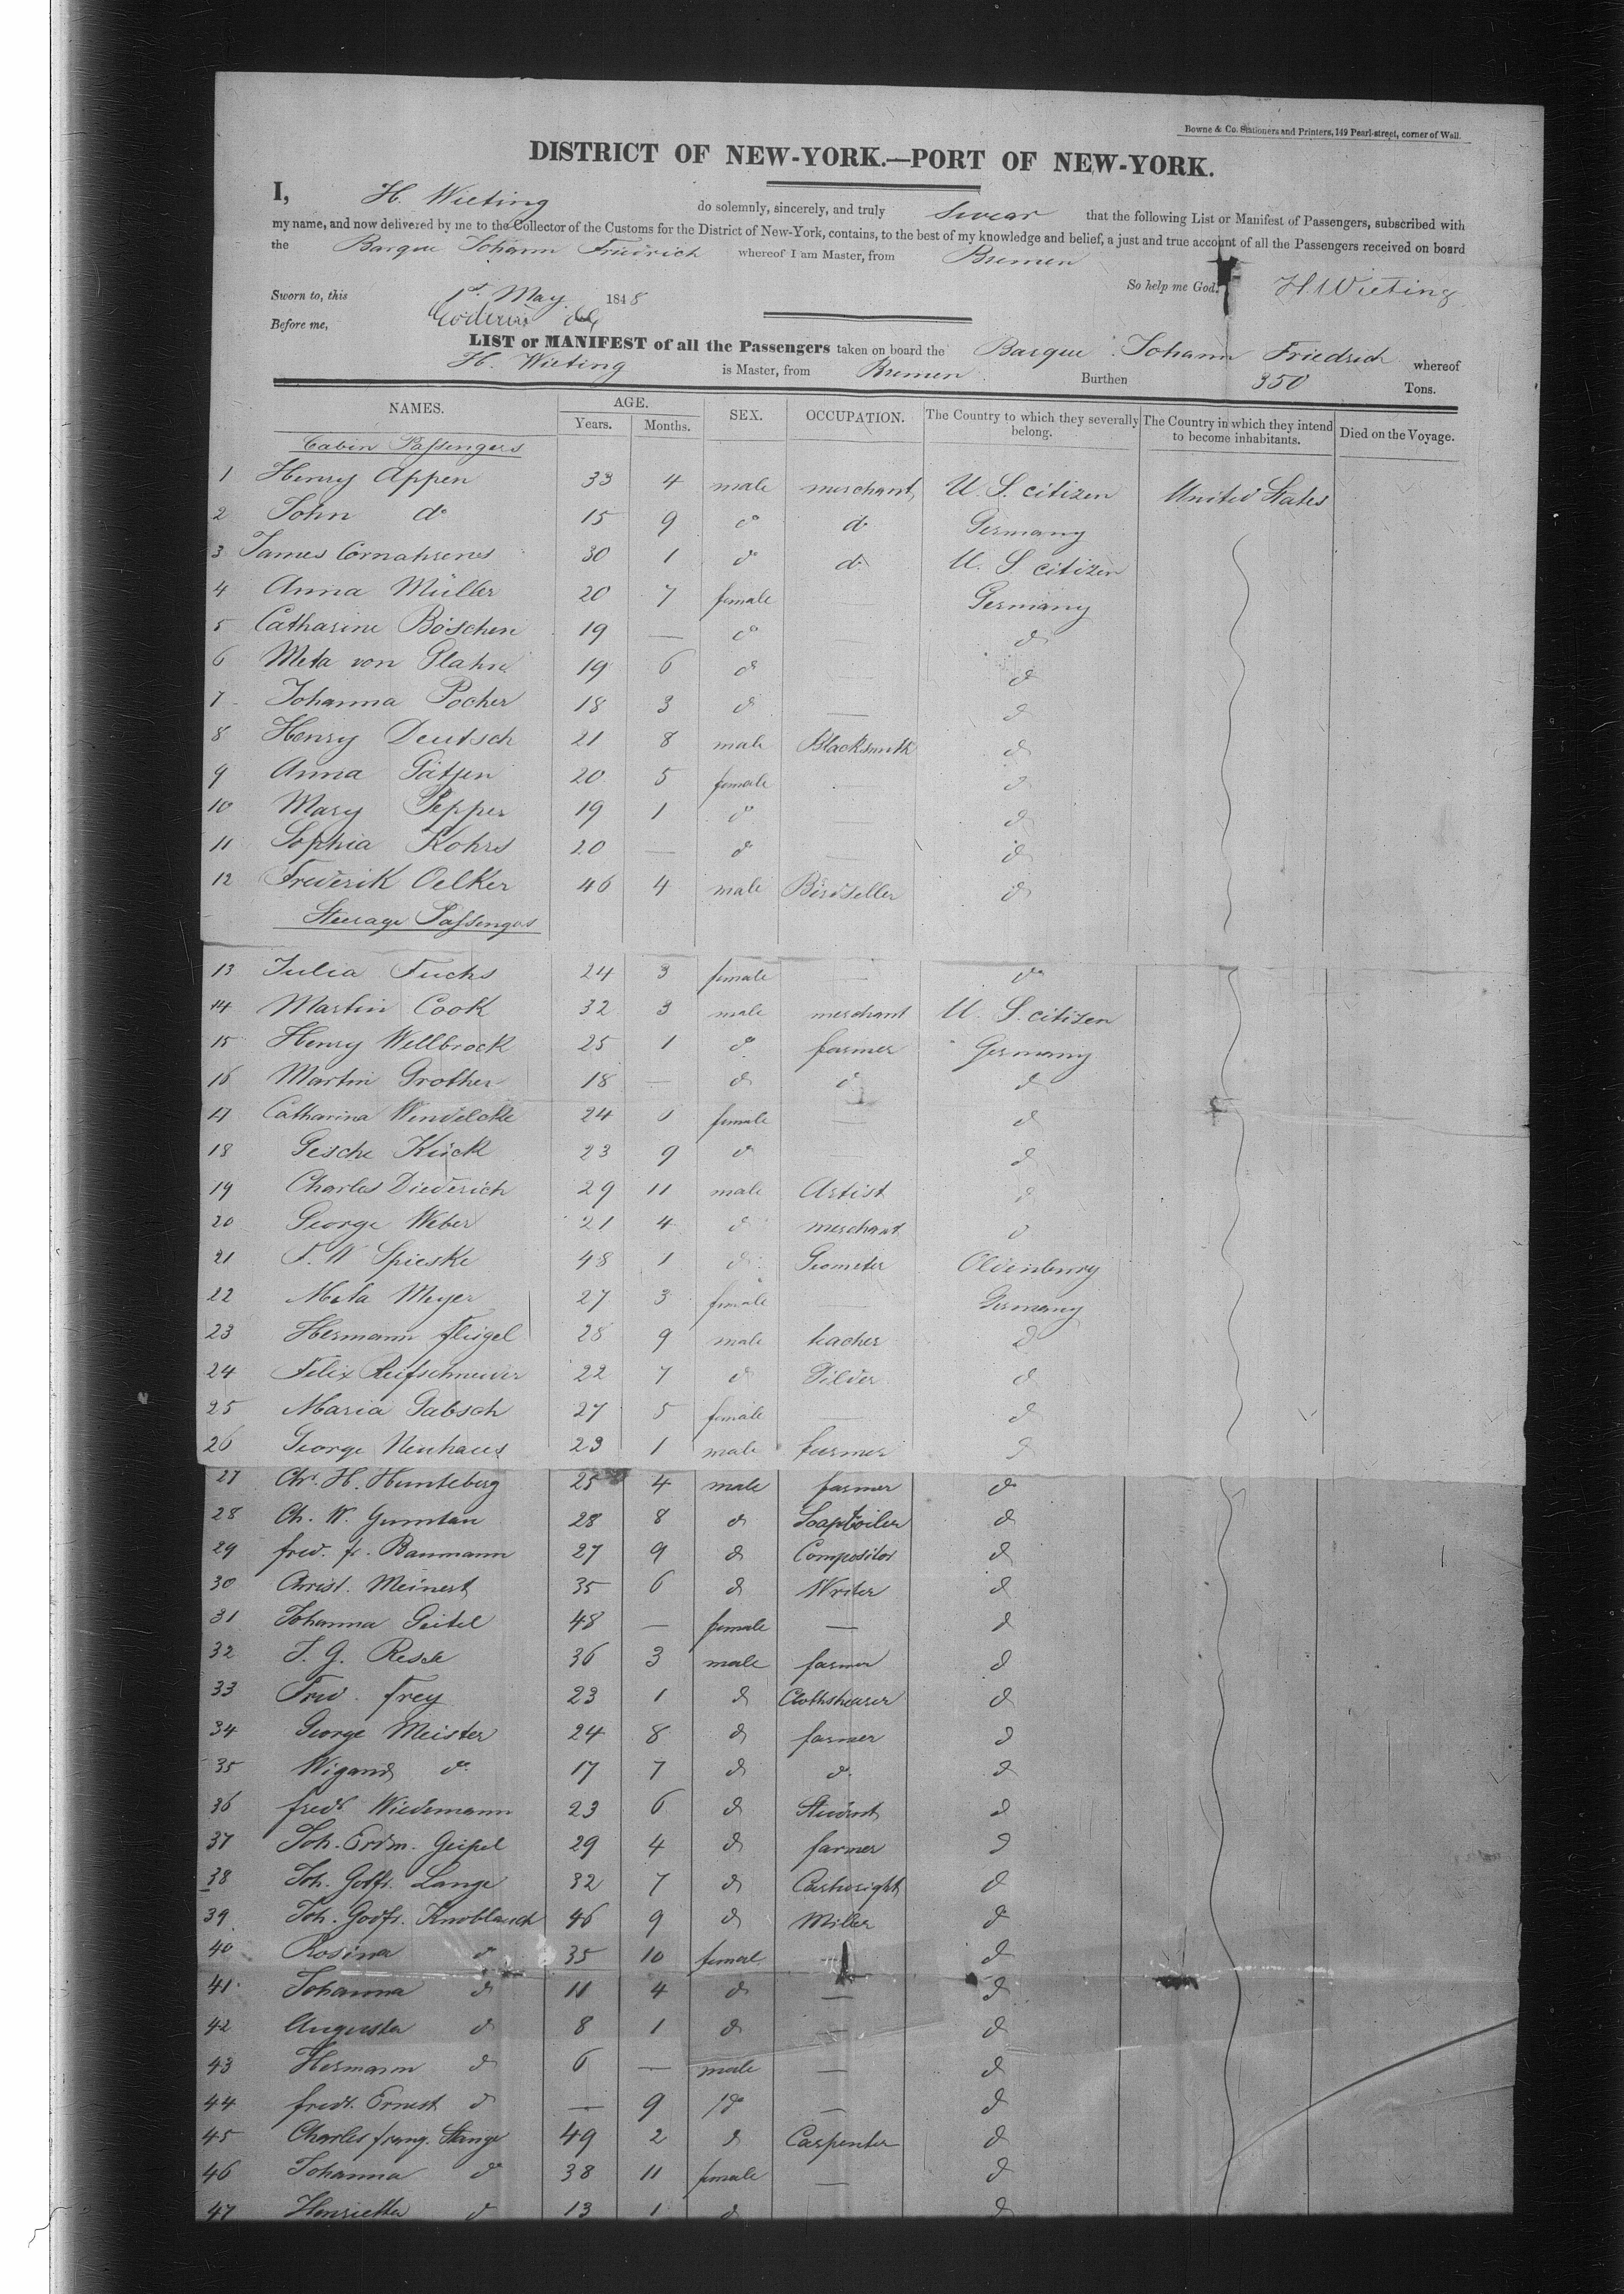 Bowne & Co. Stationers and Printers, 149 Pearl-street, corner of Wall.
DISTRICT OF NEW-YORK.—PORT OF NEW-YORK.
I, H. Wieting do solemnly, sincerely, and truly Swear that the following List or Manifest of Passengers, subscribed with
my name, and now delivered by me to the Collector of the Customs for the District of New-York, contains, to the best of my knowledge and belief, a just and true account of all the Passengers received on board
the Barque Johann Friedrich whereof I am Master, from Bremen
So help me God. H. Wieting
Sworn to, this 1st May 1848
Before me,
LIST or MANIFEST of all the Passengers taken on board the Barque Johann Friedrich whereof
H. Wieting is Master, from Bremen Burthen 350 Tons.
NAMES. AGE. Years. Months. SEX. OCCUPATION. The Country to which they severally belong. The Country in which they intend to become inhabitants. Died on the Voyage.
Cabin Passengers
1 Henry Appen 33 4 male merchant U. S. citizen United States
2 John do 15 9 do do Germany
3 James Cornahrens 30 1 do do U. S. citizen
4 Anna Müller 20 7 female — Germany
5 Catharine Böschen 19 — do — do
6 Meta von Glahn 19 6 do — do
7 Johanna Pocher 18 3 do — do
8 Henry Deutsch 21 8 male Blacksmith do
9 Anna Gätjen 20 5 female — do
10 Mary Pepper 19 1 do — do
11 Sophia Kohrs 20 — do — do
12 Frederik Oelker 46 4 male Birdseller do
Steerage Passengers
13 Julia Fuchs 24 3 female — do
14 Martin Cook 32 3 male merchant U. S. citizen
15 Henry Wellbrock 25 1 do farmer Germany
16 Martin Grothen 18 — do do do
17 Catharina 24 1 female — do
18 Gesche Kück 23 9 do — do
19 Charles Diederich 29 11 male Artist do
20 George Weber 21 4 do merchant do
21 F. W Spieske 48 1 do Geometer Oldenburg
22 Meta Meyer 27 3 female — Germany
23 Hermann Flügel 28 9 male teacher do
24 Felix Reifschneider 22 7 do Gilder do
25 Maria Gabsch 27 5 female — do
26 George Neuhaus 23 1 male farmer do
27 Chr. H. Hunteberg 25 4 male farmer do
28 Ch. W. Gumtau 28 8 do Soapboiler do
29 fred. fr. Baumann 27 9 do Compositor do
30 Christ. Meinert 35 6 do Writer do
31 Johanna Geitel 48 — female — do
32 J. G. 36 3 male farmer do
33 Fred. Frey 23 1 do Clothshearer do
34 George Meister 24 8 do farmer do
35 Wigand do 17 7 do do do
36 fredk Wiedemann 23 6 do Student do
37 Joh. Erdm. Geipel 29 4 do farmer do
38 Joh. Gottfr. Lange 32 7 do Cartwright do
39 Joh. Godfr. Knoblauch 46 9 do Miller do
40 Rosina do 35 10 female — do
41 Johanna do 11 4 do — do
42 Augusta do 8 1 do — do
43 Hermann do 6 — male — do
44 fredr. Ernest do — 9 do — do
45 Charles Stange 49 2 do Carpenter do
46 Johanna do 38 11 female — do
47 Henrietta do 13 1 do do